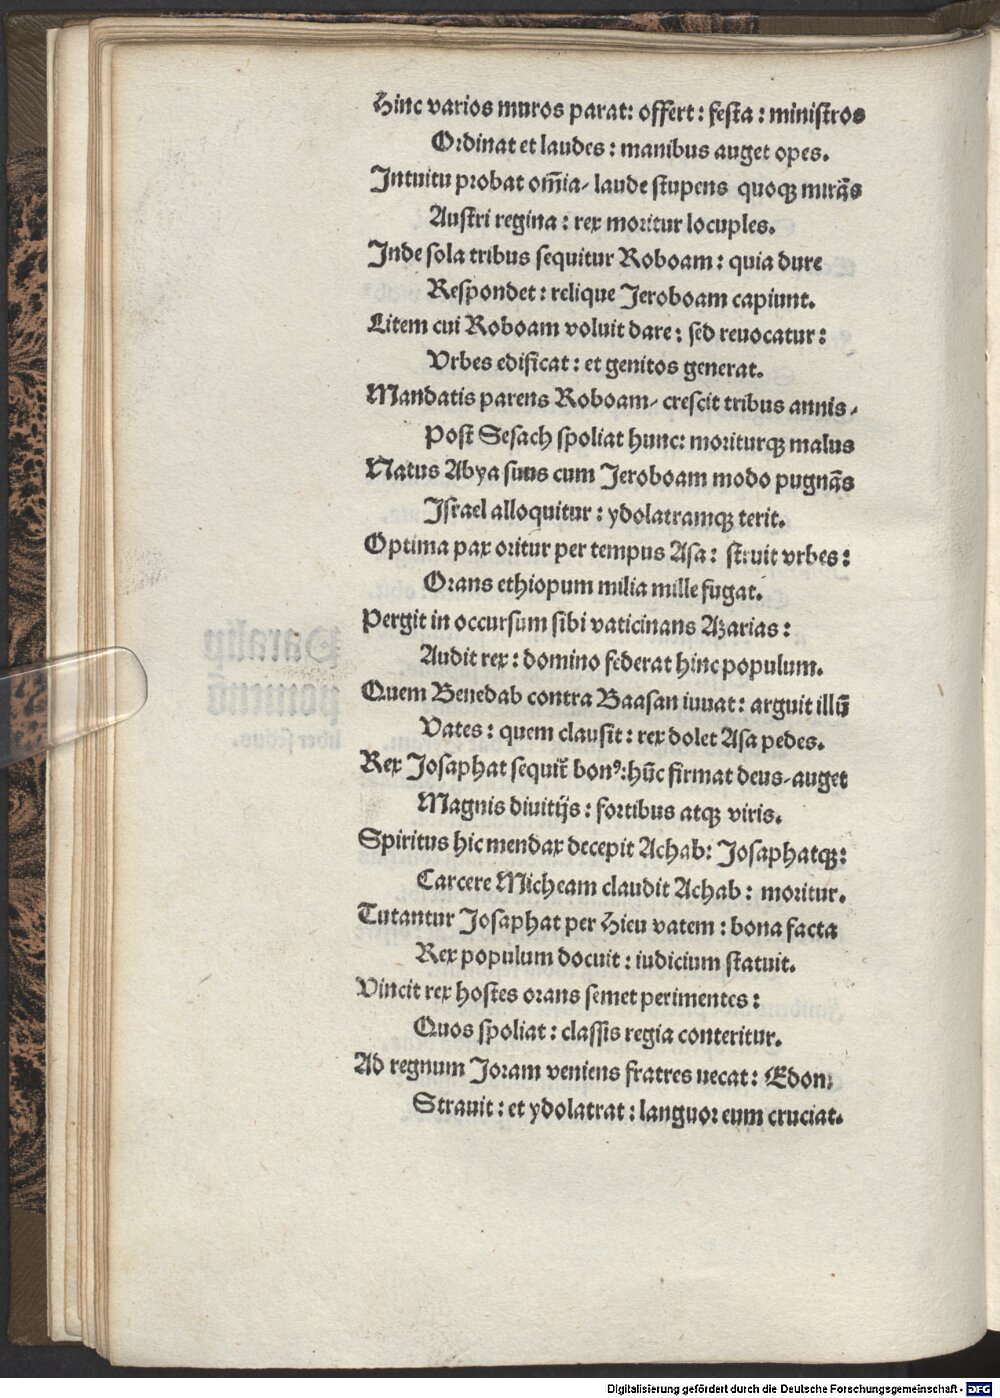 Hinc varios muros parat: offert: festa: ministros
Ordinat et laudes: manibus auget opes.
Intuitu probat om̄ia/ laude stupens quoqꝫ mirās
Austri regina: rex moritur locuples.
Inde sola tribus sequitur Roboam: quia dure
Respondet: relique Jeroboam capiunt.
Litem cui Roboam voluit dare: sed reuocatur:
Vrbes edificat: et genitos generat.
Mandatis parens Roboam/ crescit tribus annis/
Post Sesach spoliat hunc: moriturqꝫ malus
Natus Abya suus cum Jeroboam modo pugnās
Israel alloquitur: ydolatramqꝫ terit.
Optima pax oritur per tempus Asa: struit vrbes:
Orans ethiopum milia mille fugat.
Pergit in occursum sibi vaticinans Azarias:
Audit rex: domino federat hinc populum.
Quem Benedab contra Baasan iuuat: arguit illū
Vates: quem clausit: rex dolet Asa pedes.
Rex Josaphat sequit̄ bonꝰ: hūc firmat deus/ auget
Magnis diuitijs: fortibus atqꝫ viris.
Spiritus hic mendax decepit Achab: Josaphatqꝫ:
Carcere Micheam claudit Achab: moritur.
Tutantur Josaphat per Hieu vatem: bona facta
Rex populum docuit: iudicium statuit.
Vincit rex hostes orans semet perimentes:
Quos spoliat: classis regia conteritur.
Ad regnum Joram veniens fratres necat: Edon;
Strauit: et ydolatrat: languor eum cruciat.
Digitalisierung gefördert durch die Deutsche Forschungsgemeinschaft - DFG